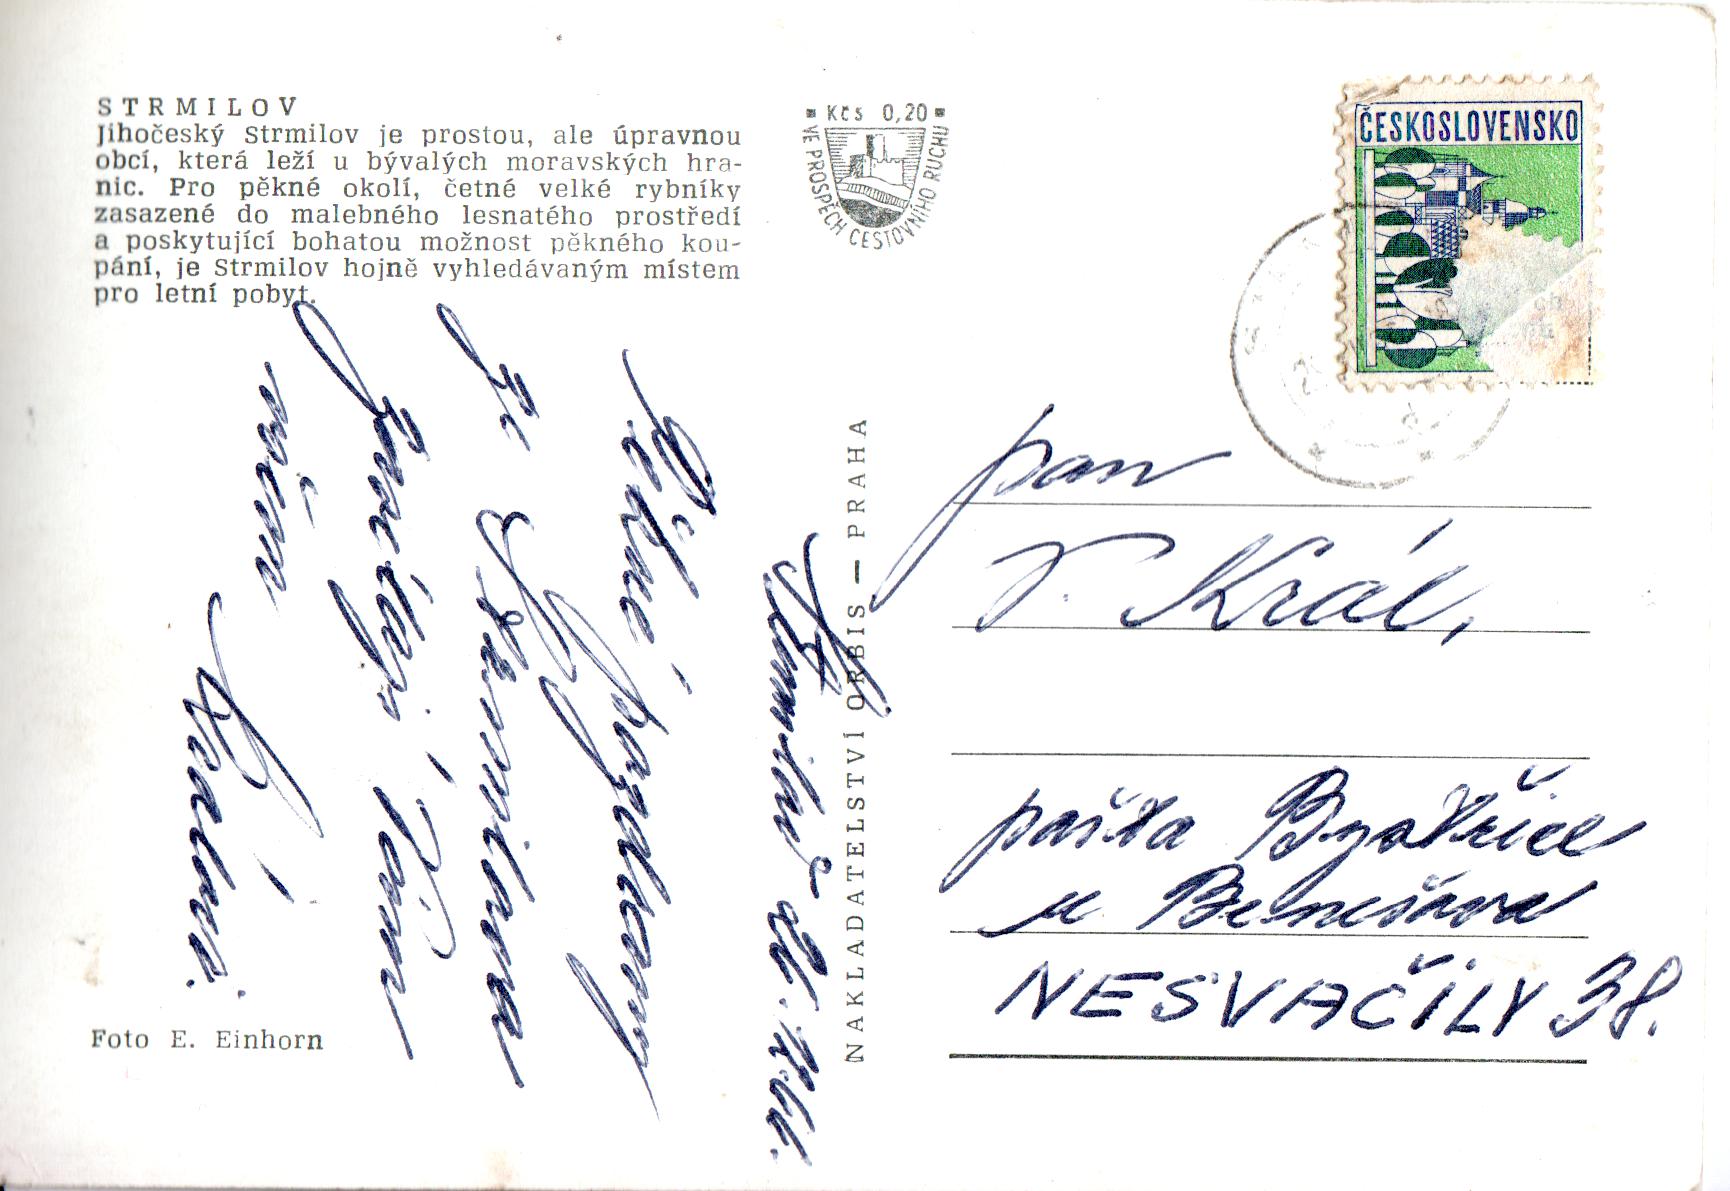 STRMILOV
Jihočeský Strmilov je prostou, ale úpravnou
obcí, která leží u bývalých moravských hra-
nic. Pro pěkné okolí, četné velké rybníky
zasazené do malebného lesnatého prostředí
a poskytující bohatou možnost pěkného kou-
pání, je Strmilov hojně vyhledávaným místem
pro letní pobyt.
Kčs 0,20
VE PROSPĚCH CESTOVNÍHO RUCHU
ČESKOSLOVENSKO
Strmilov
Pěkné pozdravy
ze Strmilova
Vám
všem
Královi.
Foto E. Einhorn
NAKLADATELSTVÍ ORBIS — PRAHA
pan
Král,
pošta Bystřice
u Benešova
NESVAČILY 38.